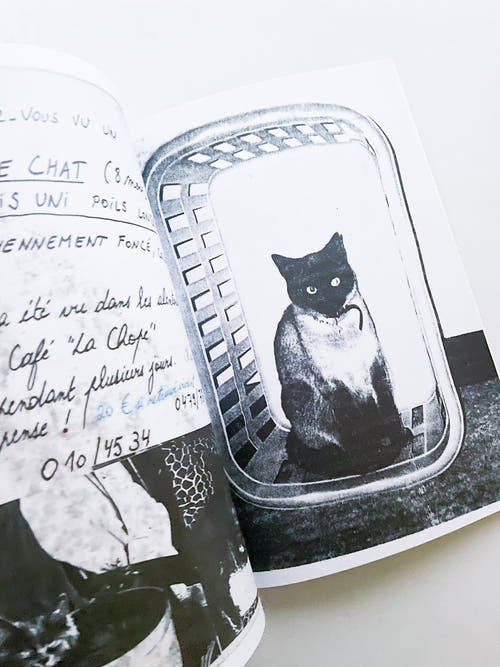 Z-VOUS VU UN
E CHAT (8
IS UNI POILS
IENNEMENT FONCÉ
a été vu dans les
Café "La Chope"
pendant plusieurs jours.
pense ! 20 €
0479/
010/45 34